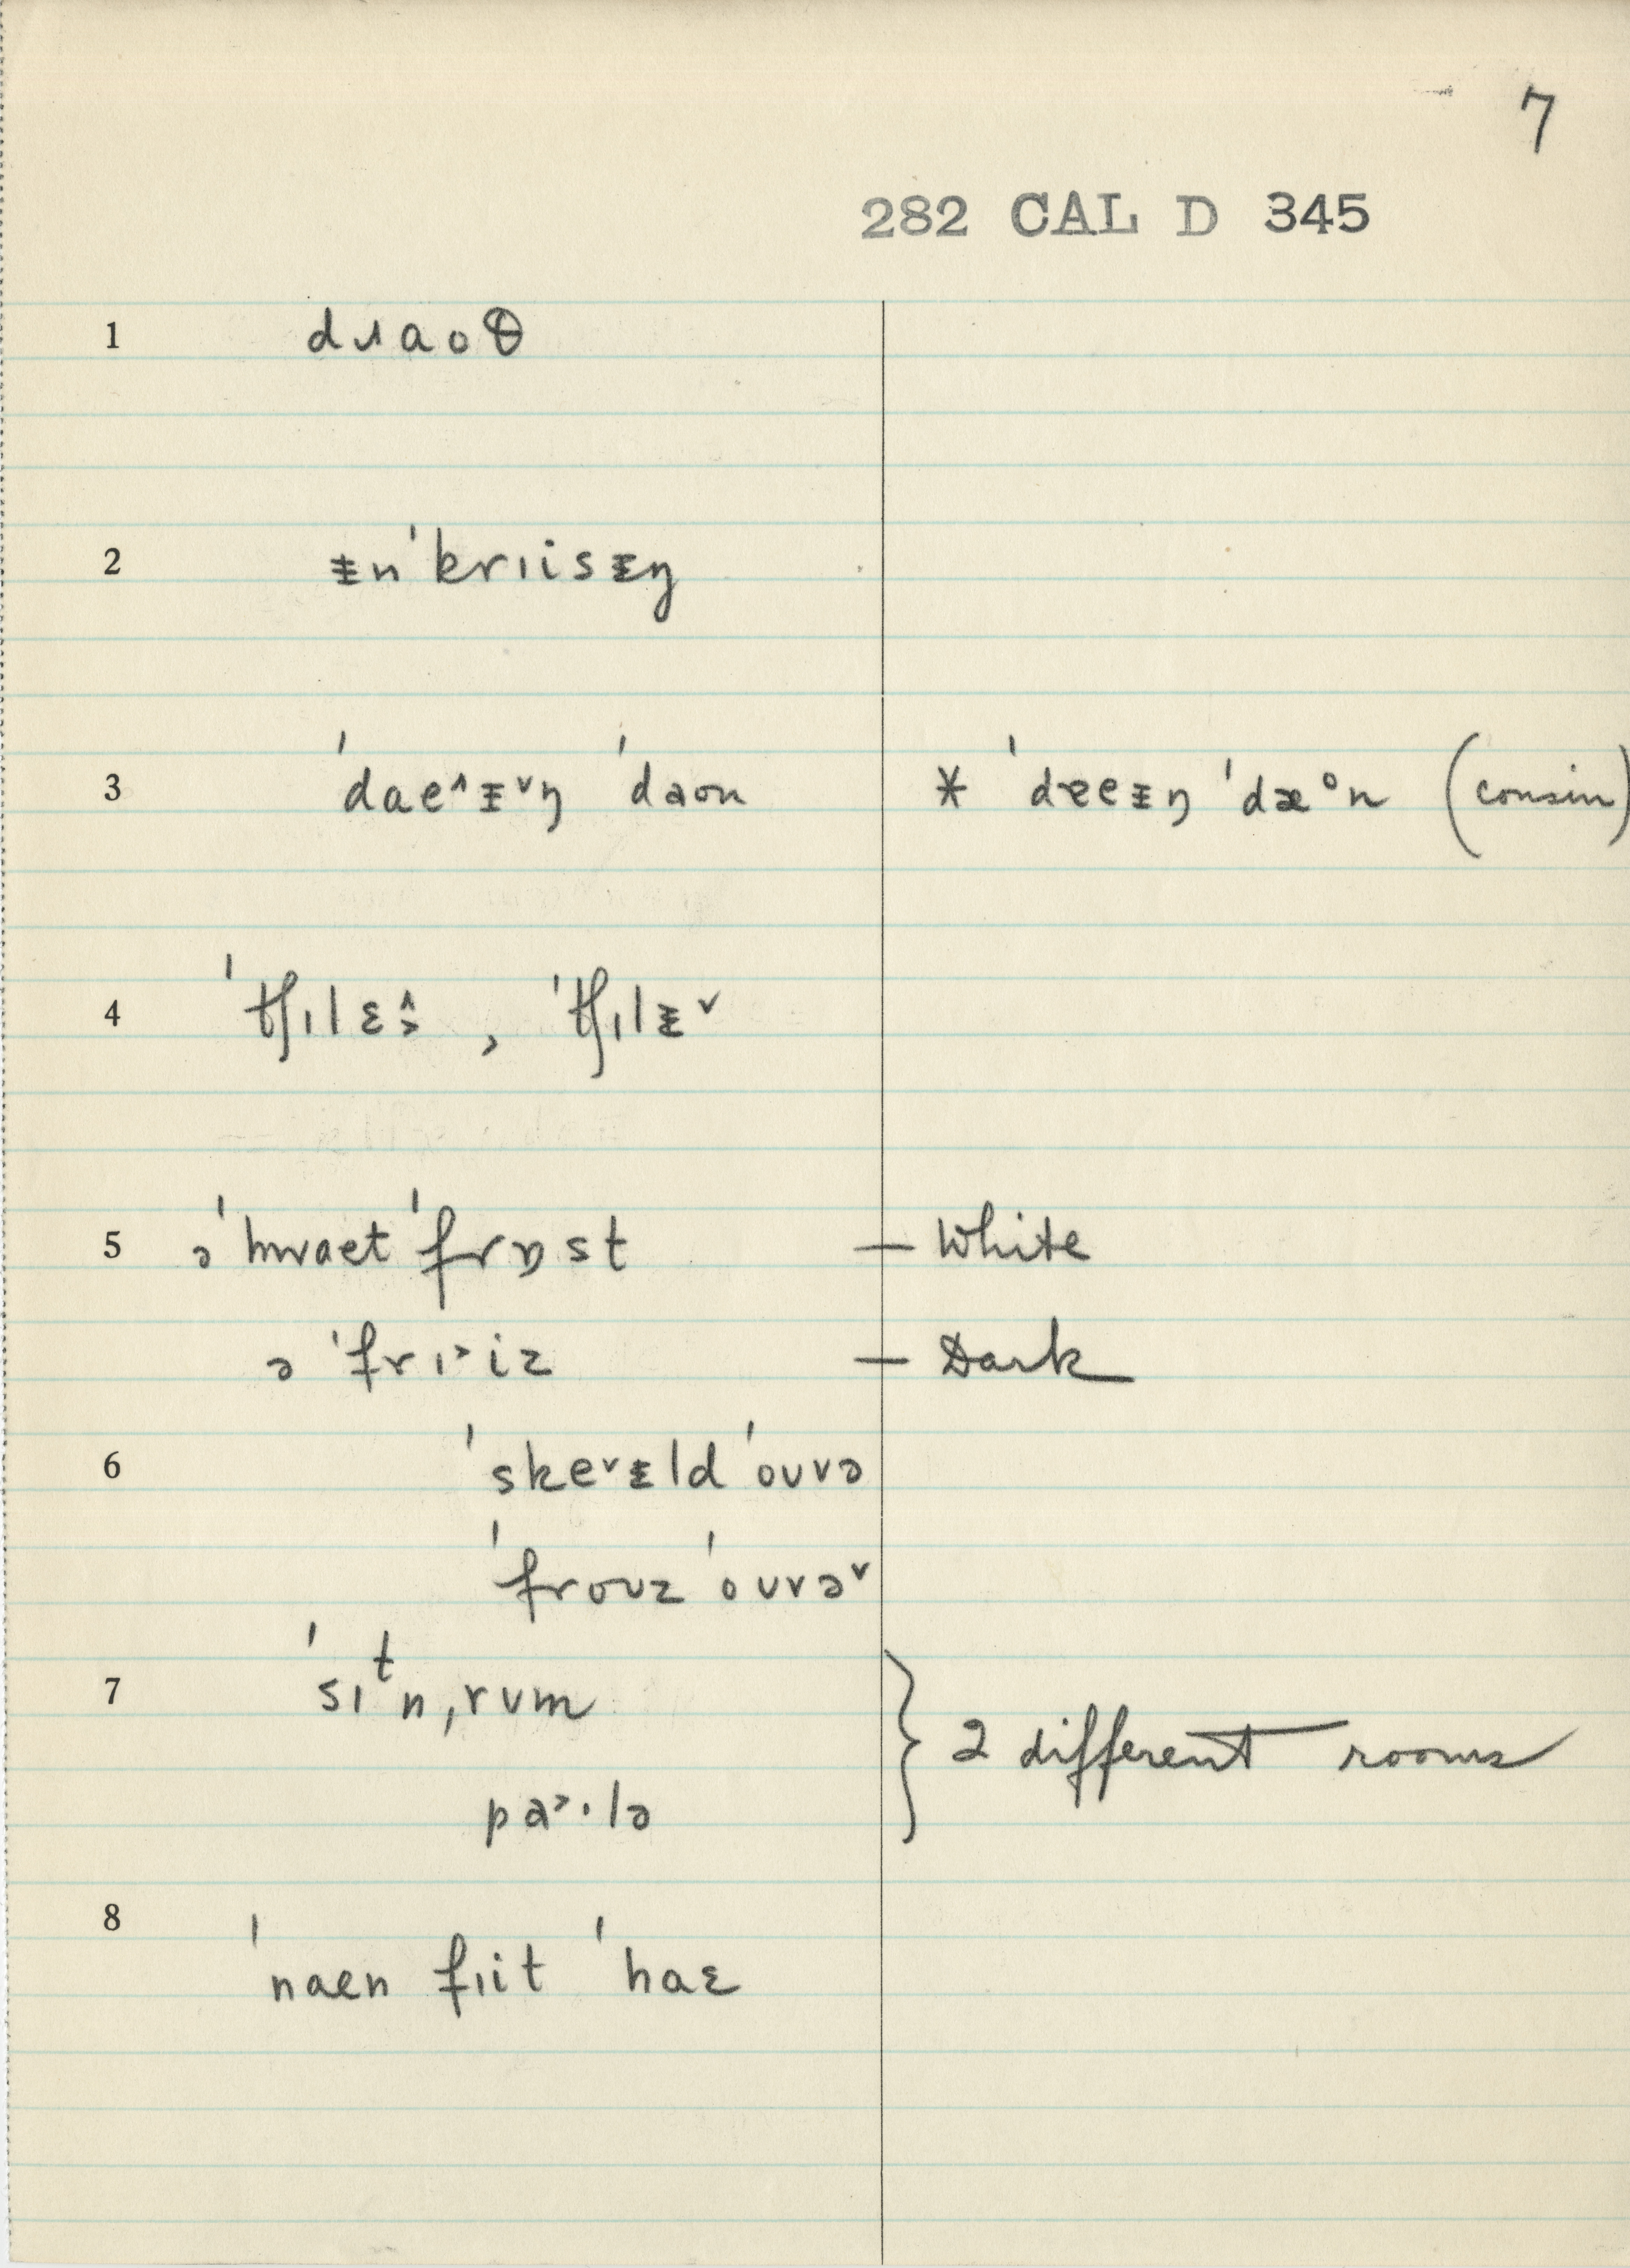 7
282 CAL D 345
1 dɹaoθ
2 ᵻn'krɪisᵻŋ
3 'dae˄ᵻ˅ŋ 'daon * 'dɐeᵻŋ 'dæᵒn (cousin)
4 'tʃɪlɛ˄˃ , 'tʃɪlᵻ˅
5 ə 'hwaet 'frɒst — White
ə 'frɪ˃iz — Dark
6 'ske˅ᵻld 'oʊvə
'froʊz 'oʊvə˅
7 'sɪᵗn,rʊm } 2 different rooms
pa˃·lə
8 'naen fɪit 'haɛ